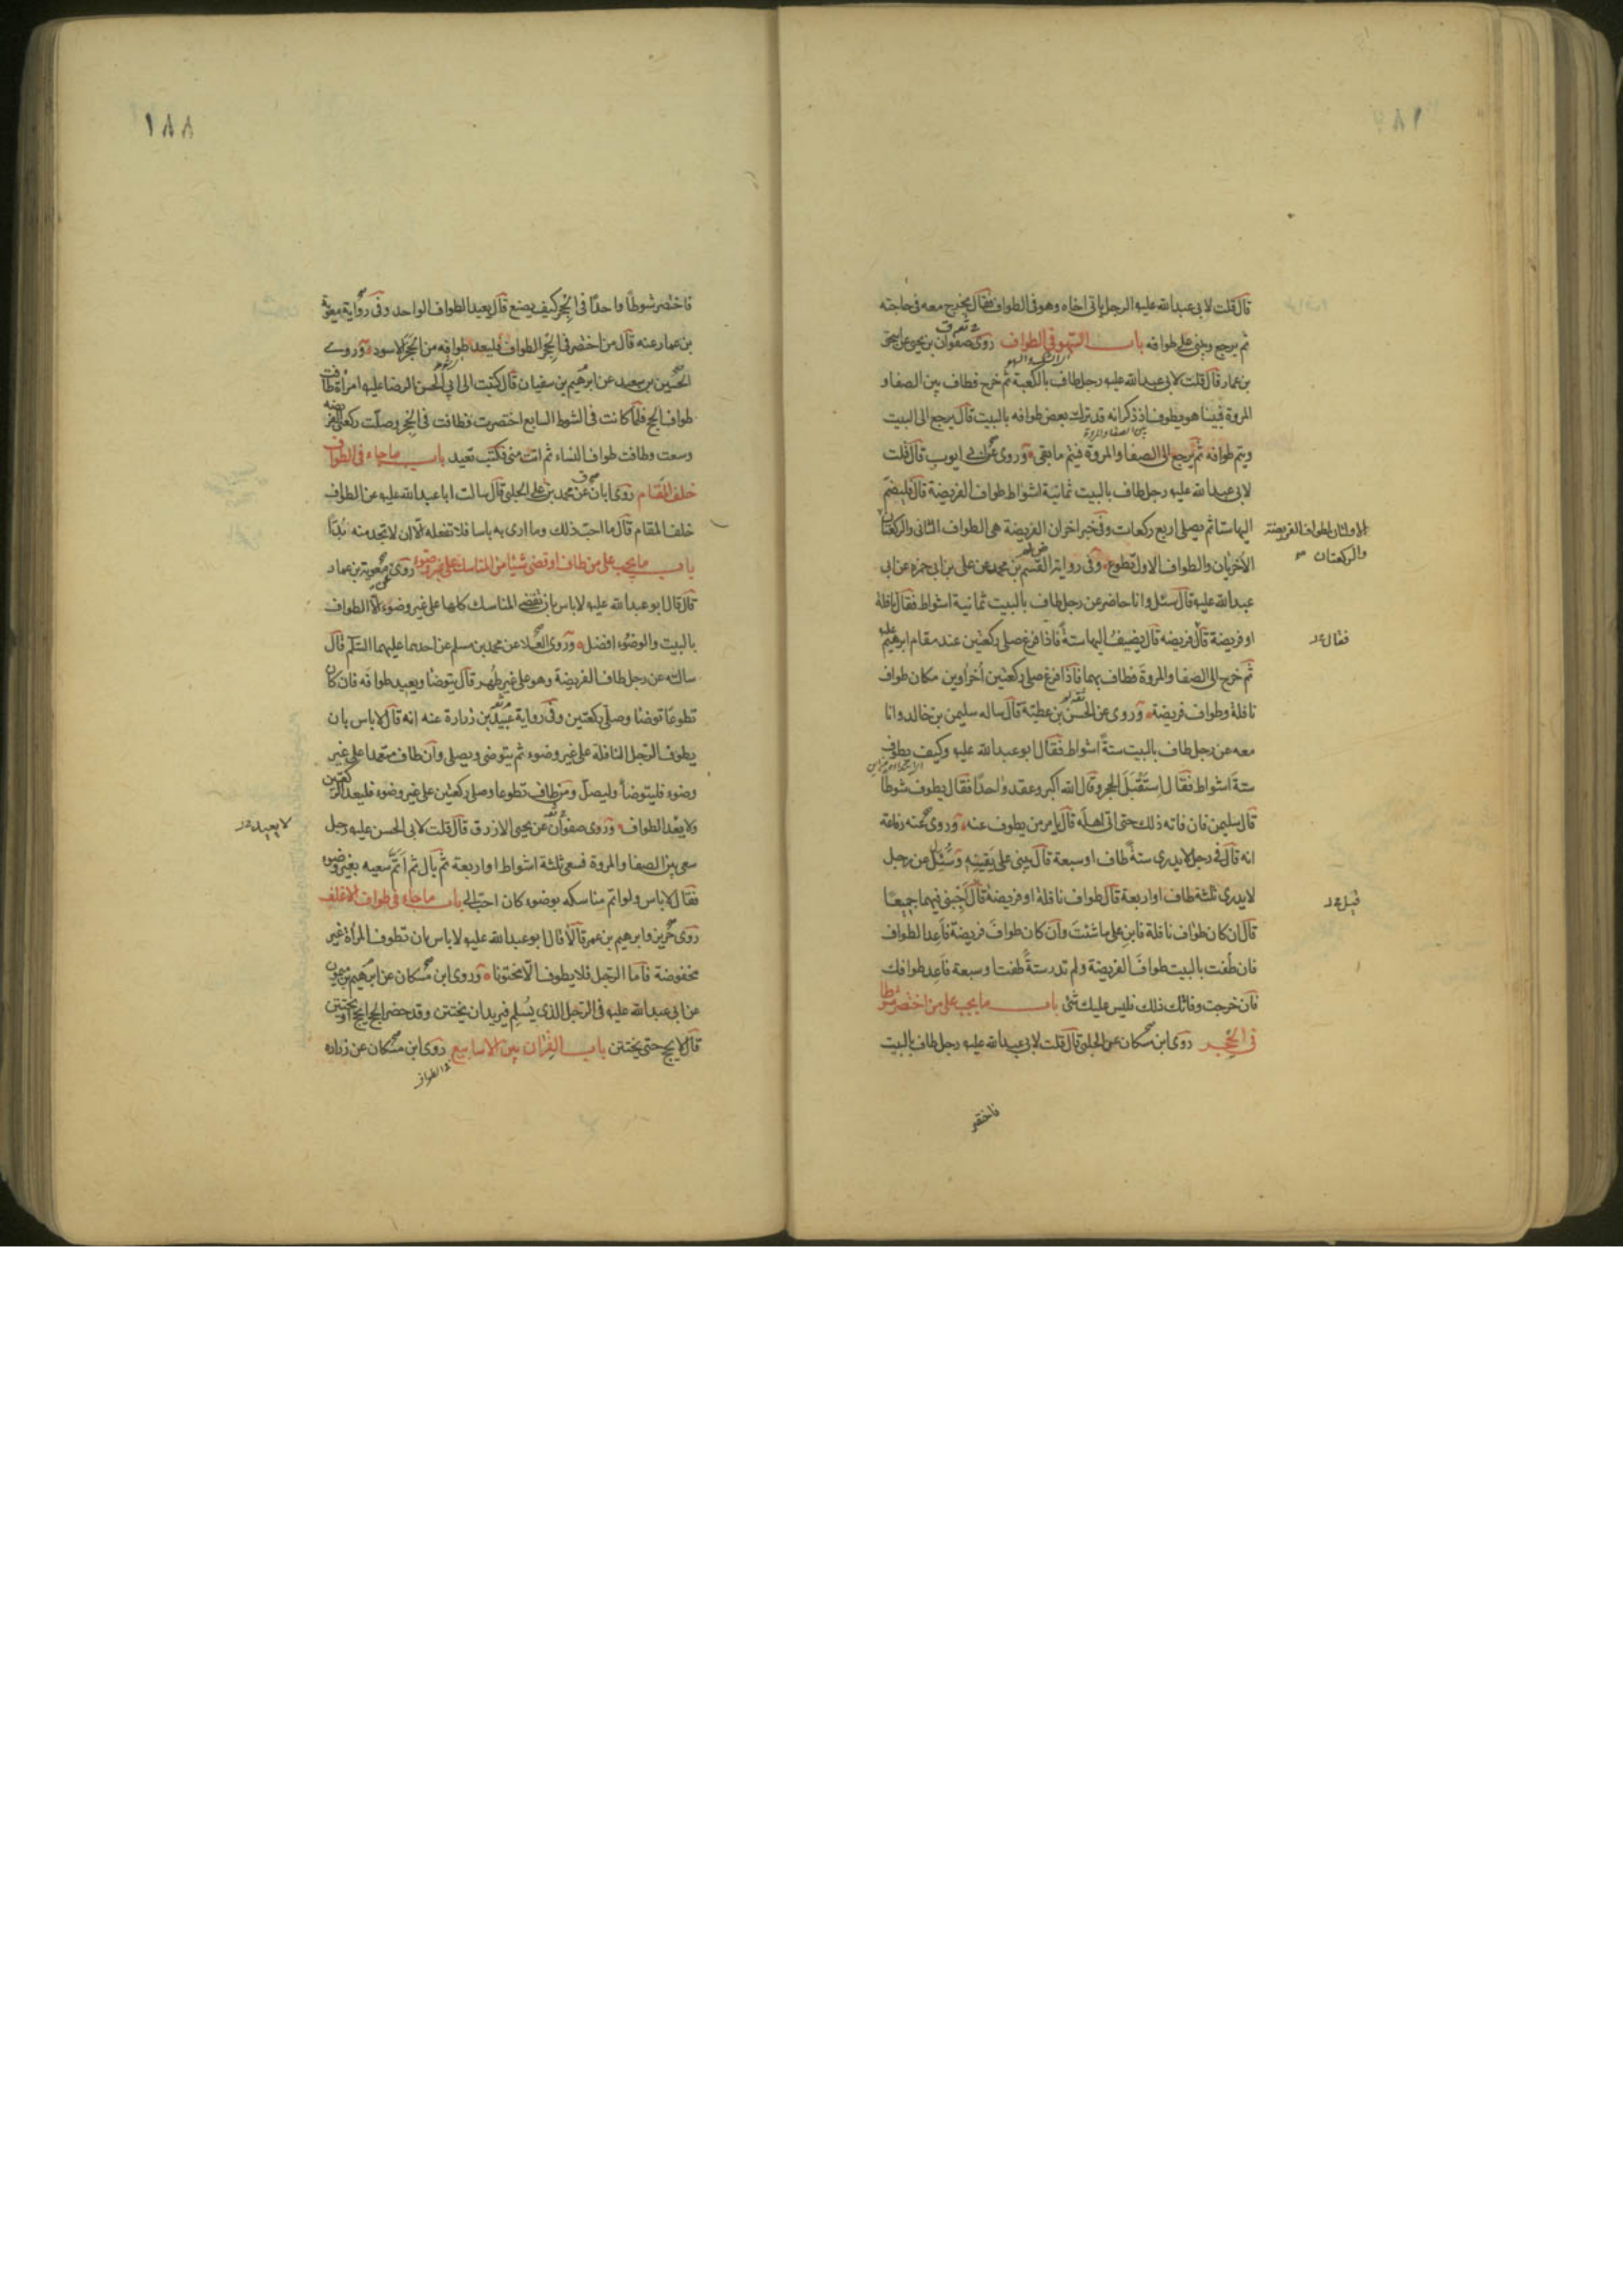 قال قلت لابي عبدالله عليه الرجل ياتي اخاه وهو في الطواف فقال يخرج معه في حاجته
ثم يرجع ويبني على طوافه باب السهو في الطواف روى صفوان بن يحيى عن اسحق
بن عمار قال قلت لابي عبدالله عليه رجل طاف بالكعبة ثم خرج فطاف بين الصفا و
المروة فبينا هو يطوف اذ ذكر انه قد ترك بعض طوافه بالبيت قال يرجع الى البيت
ويتم طوافه ثم يرجع الى الصفا والمروة فيتم ما بقي وروى عن ابي ايوب قال قلت
لابي عبدالله عليه رجل طاف بالبيت ثمانية اشواط طواف الفريضة قال فليضم
اليها ستا ثم يصلي اربع ركعات وفي خبر اخر ان الفريضة هي الطواف الثاني والركعتان
الاوليان لطواف الفريضة
والركعتان
الاخريان والطواف الاول تطوع وفي رواية القسم بن محمد عن علي بن ابي حمزه عن ابي
عبدالله عليه قال سئل وانا حاضر عن رجل طاف بالبيت ثمانية اشواط فقال نافلة
او فريضة قال فريضه قال يضيف اليها ستة فاذا فرغ صلى ركعتين عند مقام ابرهيم
فقال
ثم خرج الى الصفا والمروة فطاف بهما فاذا فرغ صلى ركعتين اخراوين مكان طواف
نافلة وطواف فريضة وروى عن الحسن بن عطية قال ساله سليمن بن خالد وانا
معه عن رجل طاف بالبيت ستة اشواط فقال ابوعبدالله عليه وكيف يطوف
ستة اشواط فقال استقبل الحجر وقال الله اكبر وعقد واحدا فقال يطوف شوطا
قال سليمن فان فاته ذلك حتى اتى اهله قال يامر من يطوف عنه وروى عنه رفاعة
انه قال في رجل لا يدري ستة طاف او سبعة قال يبني على يقينه وسئل عن رجل
لا يدري ثلثة طاف او اربعة قال طواف نافلة او فريضة قال اجبني فيهما جميعا
قيل
قال ان كان طواف نافلة فابن على ما شئت وان كان طواف فريضة فاعد الطواف
فان طفت بالبيت طواف الفريضة ولم تدر ستة طفت او سبعة فاعد طوافك
فان خرجت وفاتك ذلك فليس عليك شئ باب ما يجب على من اختصر شوطا
في الحجر روى ابن مسكان عن الحلبي قال قلت لابي عبدالله عليه رجل طاف بالبيت
فاختصر
١٨٨
فاختصر شوطا واحدا في الحجر كيف يصنع قال يعيد الطواف الواحد وفي رواية معوية
بن عمار عنه قال من اختصر في الحجر الطواف فليعد طوافه من الحجر الاسود وروى
الحسين بن سعيد عن ابرهيم بن سفيان قال كتبت الى ابي الحسن الرضا عليه امراة طافت
طواف الحج فلما كانت في الشوط السابع اختصرت فطافت في الحجر وصلت ركعتي الفريضه
وسعت وطافت طواف النساء ثم اتت منى فكتب تعيد باب ما جاء في الطواف
خلف المقام روى ابان عن محمد بن علي الحلبي قال سالت ابا عبدالله عليه عن الطواف
خلف المقام قال ما احب ذلك وما ارى به باسا فلا تفعله الا ان لا تجد منه بدا
باب ما يجب على من طاف او قضى شيئا من المناسك على غير وضوء روى معوية بن عمار
قال قال ابوعبدالله عليه لا باس بان تقضي المناسك كلها على غير وضوء الا الطواف
بالبيت والوضوء افضل وروى العلا عن محمد بن مسلم عن احدهما عليهما السلم قال
سالته عن رجل طاف الفريضة وهو على غير طهر قال يتوضا ويعيد طوافه فان كان
تطوعا توضا وصلى ركعتين وفي رواية عبيد بن زرارة عنه انه قال لا باس بان
يطوف الرجل النافلة على غير وضوء ثم يتوضى ويصلي وان طاف متعمدا على غير
وضوء فليتوضأ وليصل ومن طاف تطوعا وصلى ركعتين على غير وضوء فليعد الركعتين
ولا يعد الطواف وروى صفوان عن يحيى الازرق قال قلت لابي الحسن عليه رجل
لا يعيد
سعى بين الصفا والمروة فسعى ثلثة اشواط او اربعة ثم بال ثم اتم سعيه بغير وضوء
فقال لا باس ولو اتم مناسكه بوضوء كان احب الي باب ما جاء في طواف الاغلف
روى حريز وابرهيم بن عمر قالا قال ابوعبدالله عليه لا باس بان تطوف المرأة غير
مخفوضة فاما الرجل فلا يطوف الا مختونا وروى ابن مسكان عن ابرهيم بن ميمون
عن ابي عبدالله عليه في الرجل الذي يسلم فيريدان يختتن وقد حضر الحج ايحج او يختتن
قال لا يحج حتى يختتن باب القران بين الاسابيع روى ابن مسكان عن زراره
الطواف